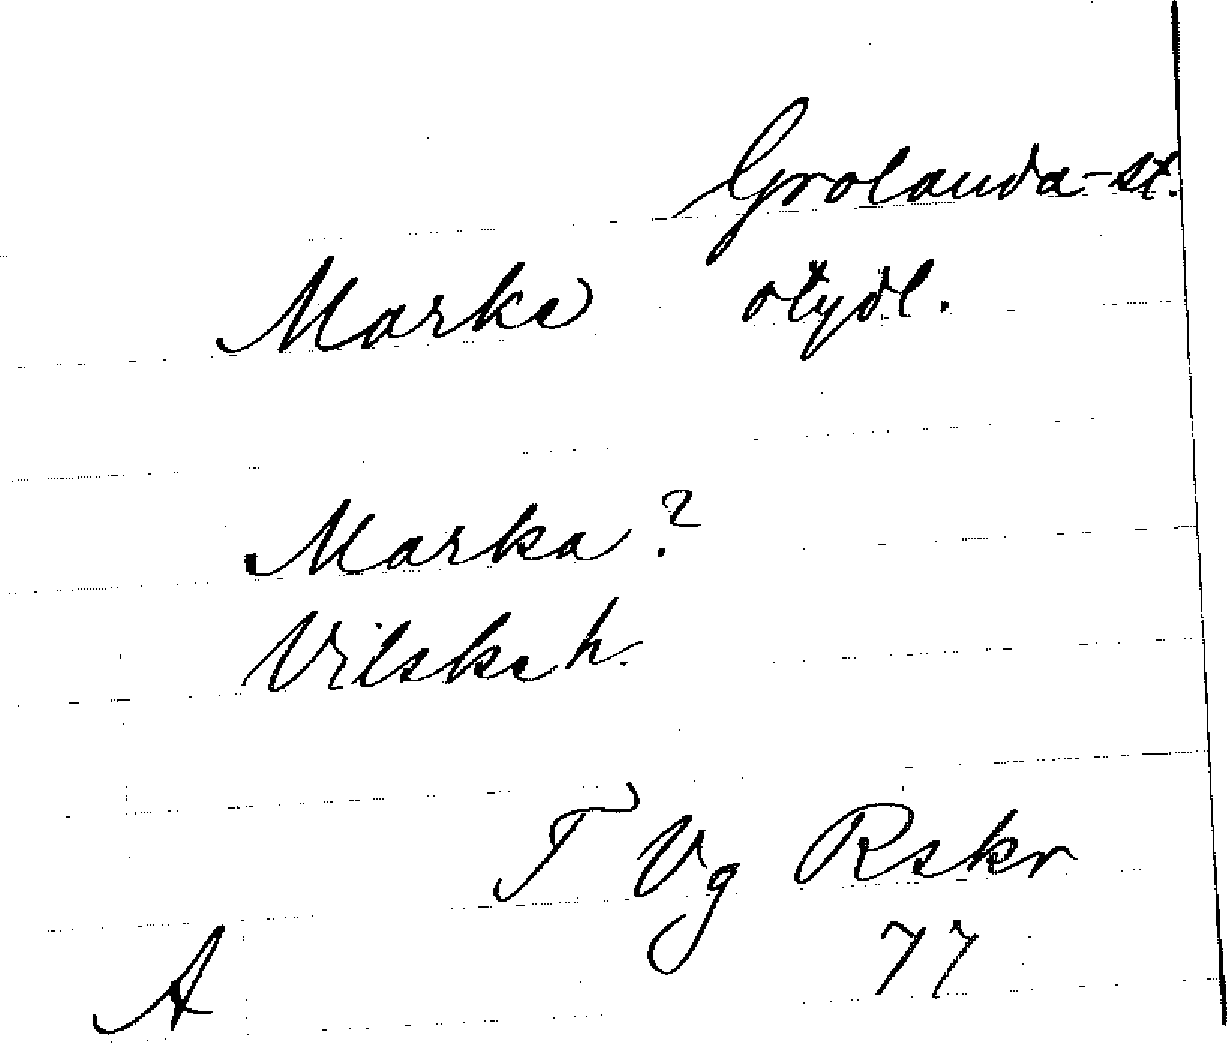 Grolanda-st.
Marka otydl.
Marka?
Vilske h.
T Vg Rskr
77
A